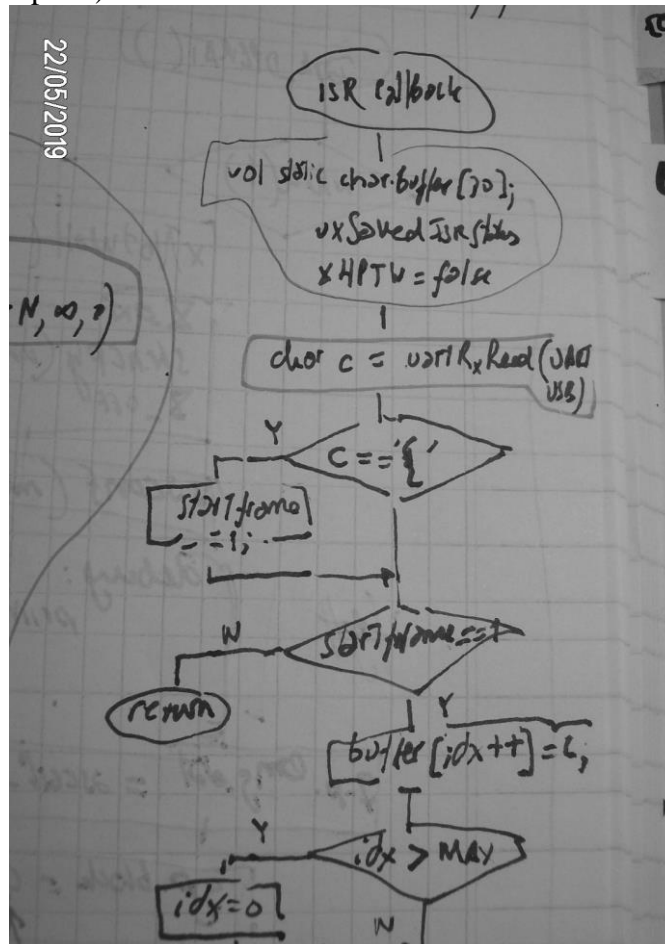 22/05/2019
ISR Callback
vol static char buffer[30];
uxSavedISRStatus
xHPTW = false
N, ∞, 0)
char c = uartRxRead(UART
USB)
Y
c == '{'
startframe
= 1;
startframe == 1
N
return
Y
buffer[idx++] = c;
Y
idx > MAX
idx = 0
N